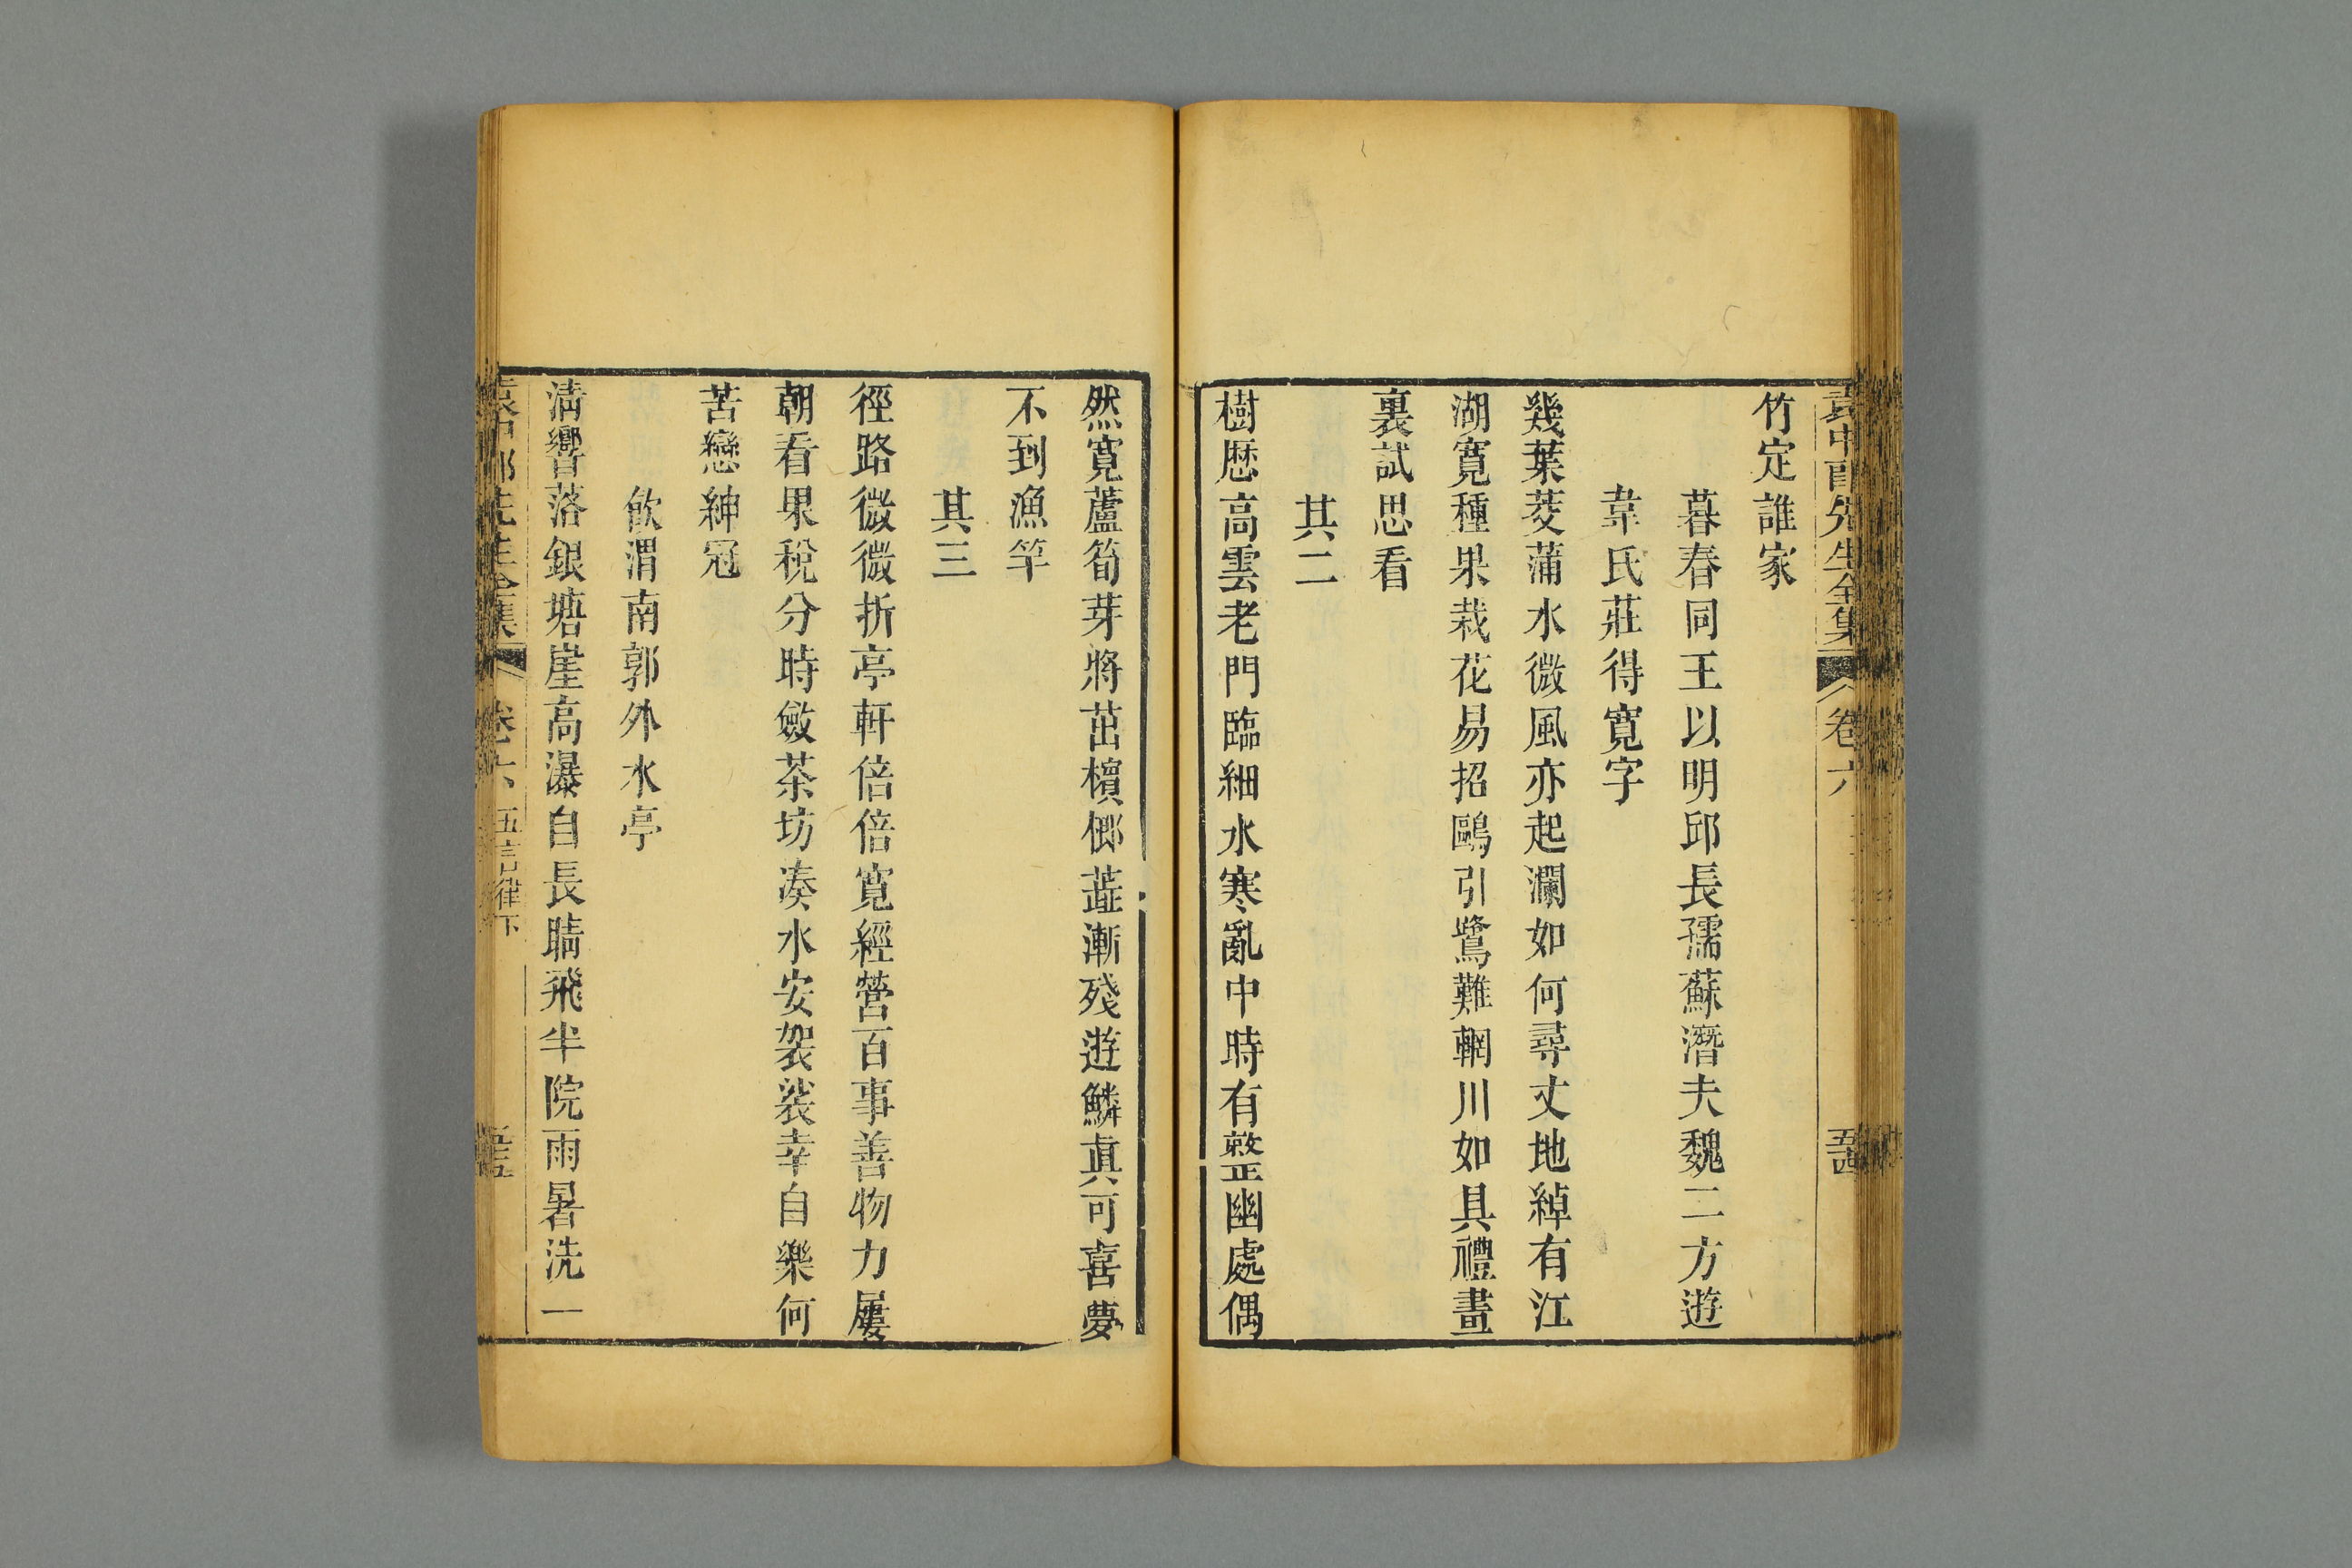 袁中郎先生全集 卷六 五十四
竹定誰家
暮春同王以明邱長孺蘇潛夫魏二方遊
韋氏莊得寛字
幾葉菱蒲水微風亦起瀾如何尋丈地綽有江
湖寛種果栽花易招鷗引鷺難輞川如具禮畫
裏試思看
其二
樹歴高雲老門臨細水寒亂中時有整幽處偶
然寛蘆筍芽將茁檳榔葅漸殘遊鱗眞可喜夢
不到漁竿
其三
徑路微微折亭軒倍倍寛經營百事善物力屢
朝看果稅分時斂茶坊凑水安袈裟幸自樂何
苦戀紳冠
飲渭南郭外水亭
淸響落銀塘崖高瀑自長晴飛半院雨暑洗一
袁中郎先生全集 卷六 五言律下 五十五